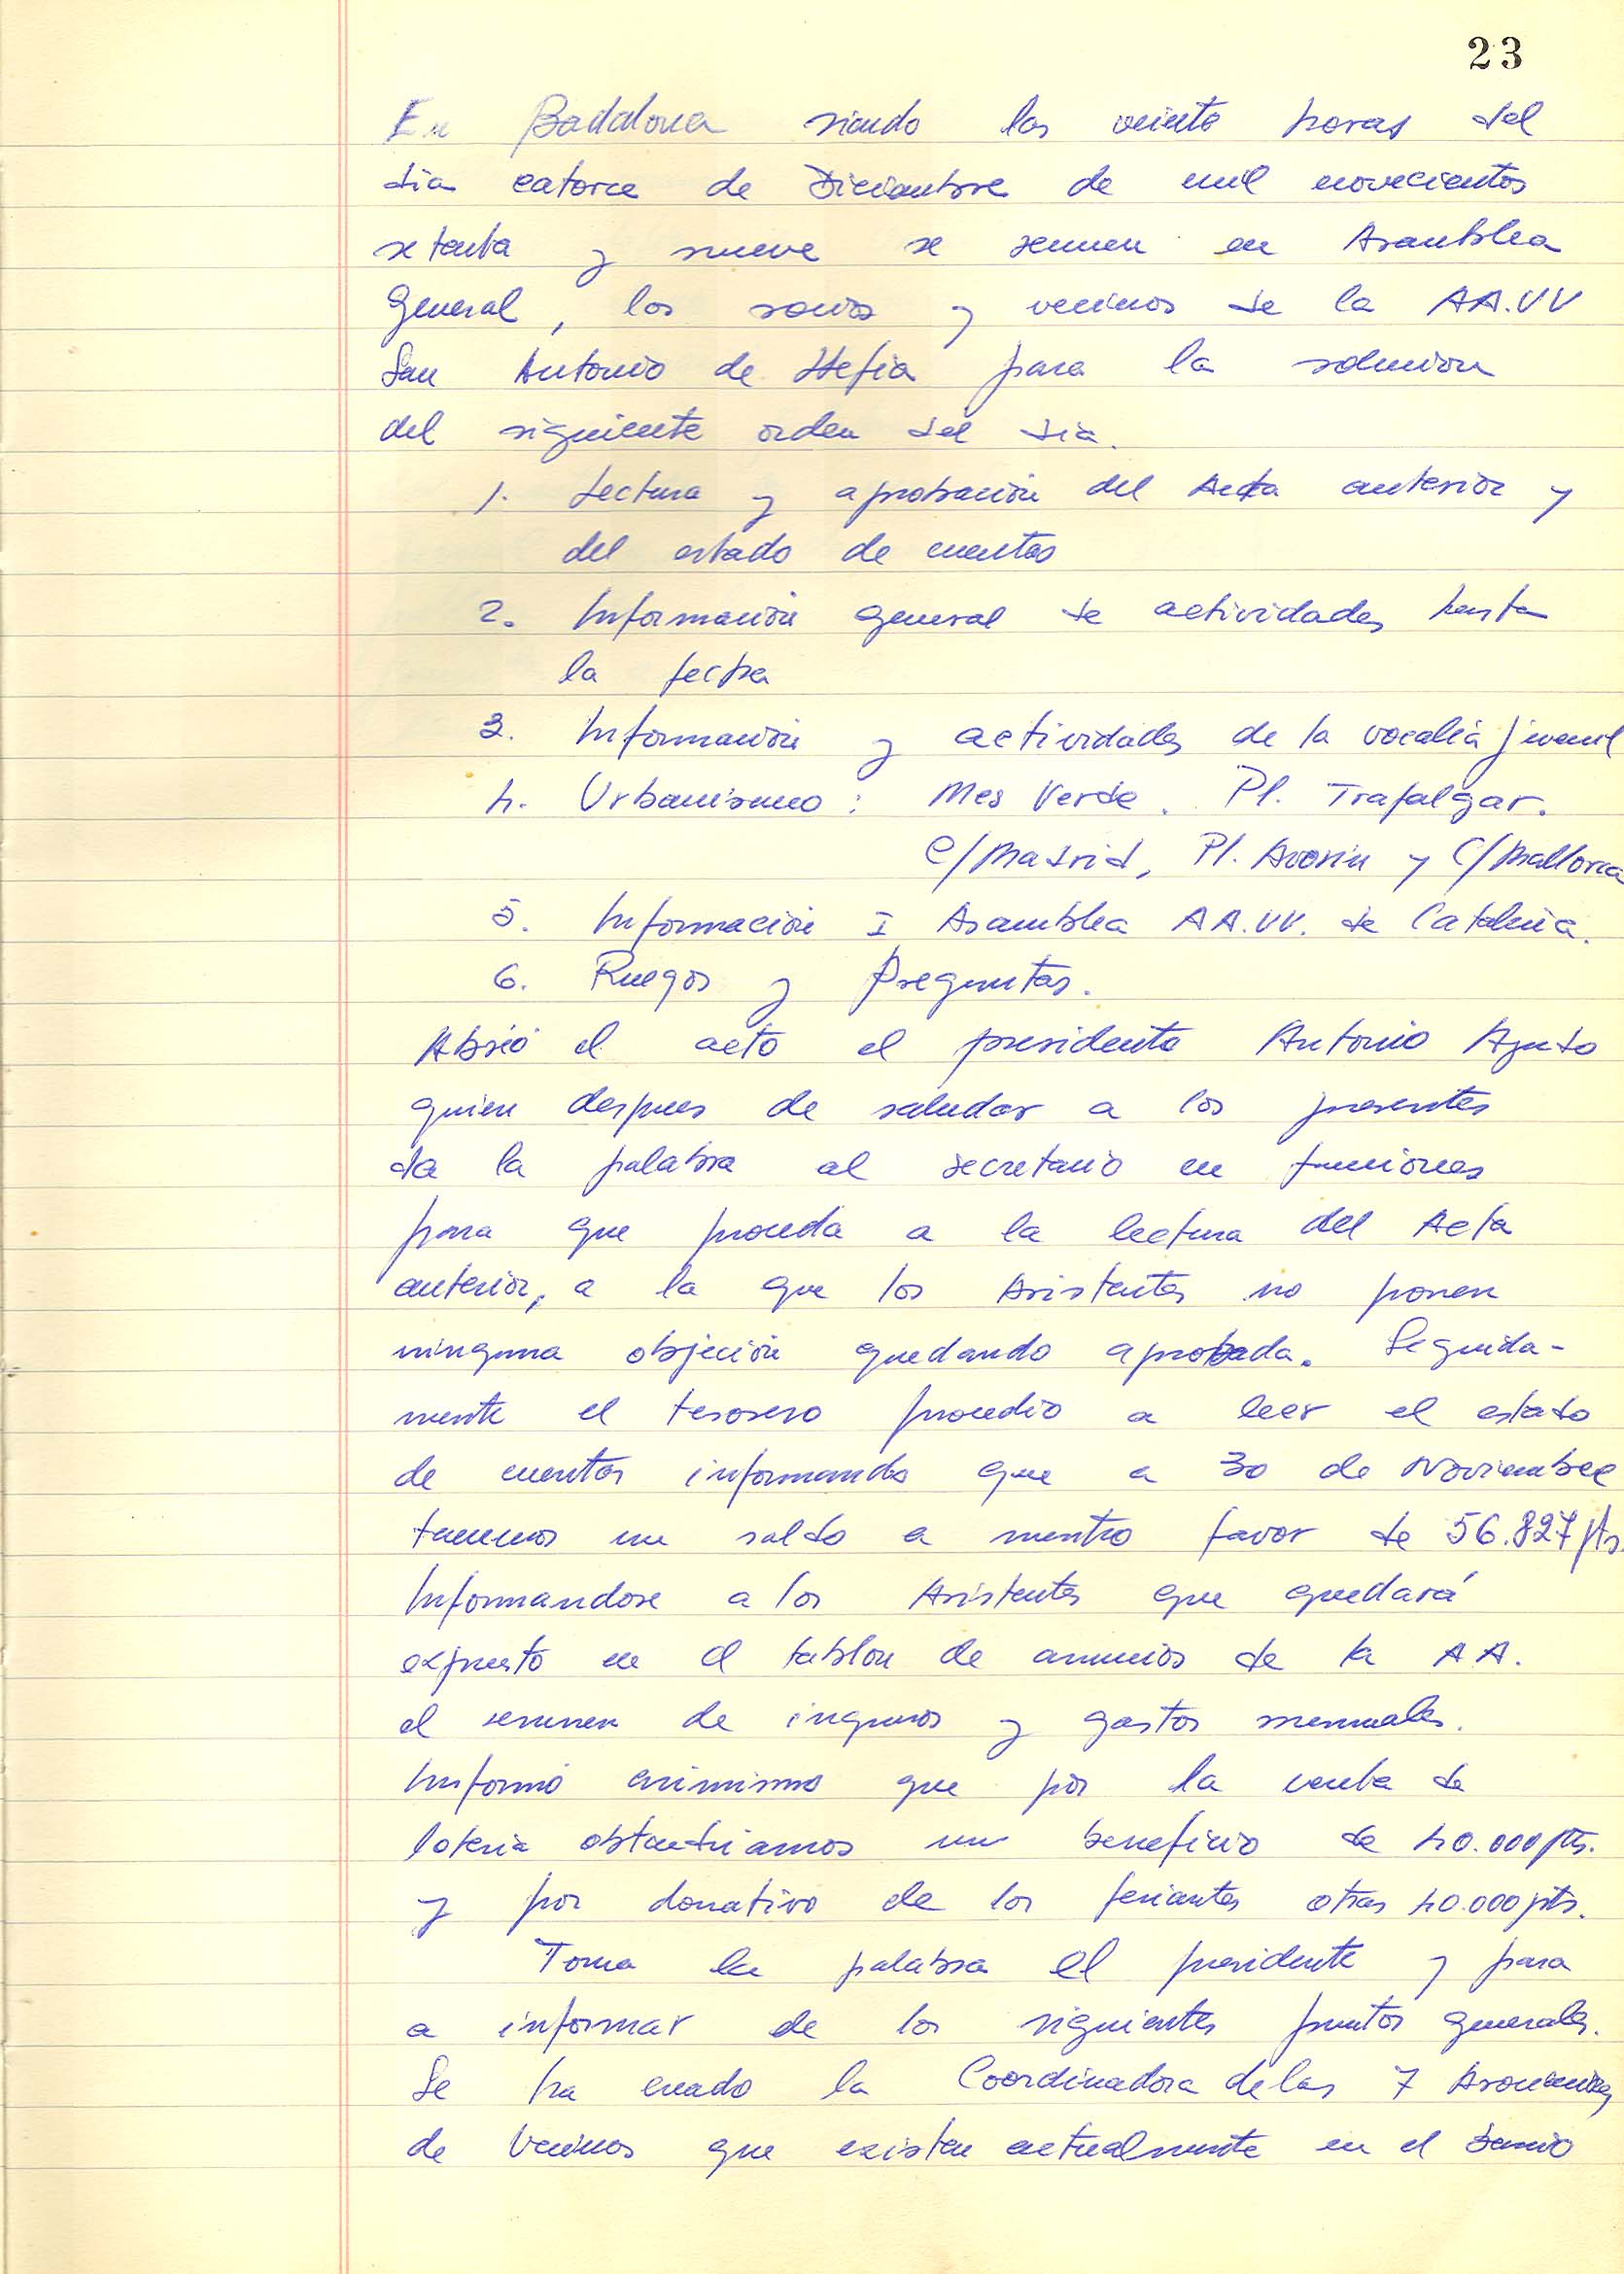 23
En Badalona siendo las veinte horas del
dia catorce de Diciembre de mil novecientos
setenta y nueve se reunen en Asamblea
General, los socios y vecinos de la AA.VV
San Antonio de Llefia para la solucion
del siguiente orden del dia.
1. Lectura y aprobación del Acta anterior y
del estado de cuentas
2. Información general de actividades hasta
la fecha
3. Información y actividades de la vocalia juvenil
4. Urbanismo: Mes Verde. Pl. Trafalgar.
C/Madrid, Pl. y C/Mallorca
5. Información I Asamblea AA.VV. de Cataluña.
6. Ruegos y Preguntas.
Abrió el acto el presidente Antonio
quien despues de saludar a los presentes
da la palabra al secretario en funciones
para que proceda a la lectura del Acta
anterior, a la que los Asistentes no ponen
ninguna objeción quedando aprobada. Seguida-
mente el tesorero procedio a leer el estado
de cuentas informando que a 30 de Noviembre
tenemos un saldo a nuestro favor de 56.827 pts.
Informandose a los Asistentes que quedará
expuesto en el tablon de anuncios de la AA.
el resumen de ingresos y gastos mensuales.
Informó asimismo que por la venta de
loteria obtendriamos un beneficio de 40.000 pts.
y por donativo de los feriantes otras 40.000 pts.
Toma la palabra el presidente y pasa
a informar de los siguientes puntos generales.
Se ha creado la Coordinadora de las 7 Asociaciones
de Vecinos que existen actualmente en el barrio